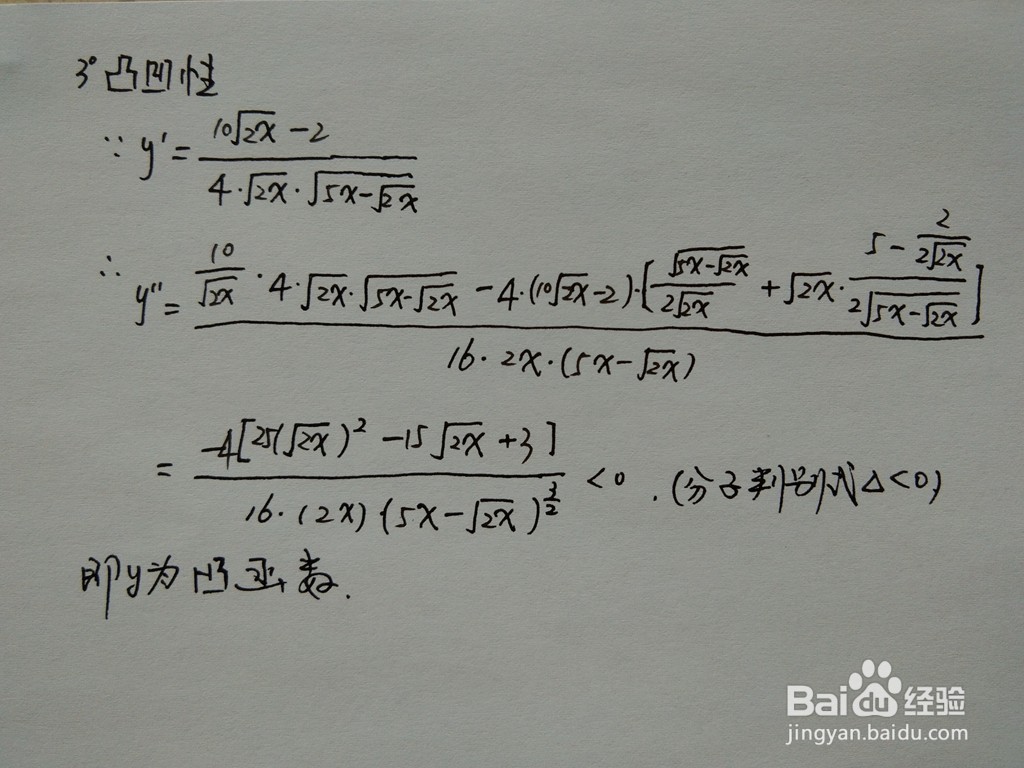 3° 凸凹性
∵ y' = (10√(2x) - 2) / (4·√(2x)·√(5x-√(2x)))
∴ y'' = (10/√(2x) · 4·√(2x)·√(5x-√(2x)) - 4·(10√(2x)-2)·[√(5x-√(2x))/(2√(2x)) + √(2x)·(5 - 2/(2√(2x)))/(2√(5x-√(2x)))]) / (16·2x·(5x-√(2x)))
= -4[25(√(2x))² - 15√(2x) + 3] / (16·(2x)(5x-√(2x))^(3/2)) < 0 . (分子判别式△<0)
即y为凹函数.
Baidu经验
jingyan.baidu.com